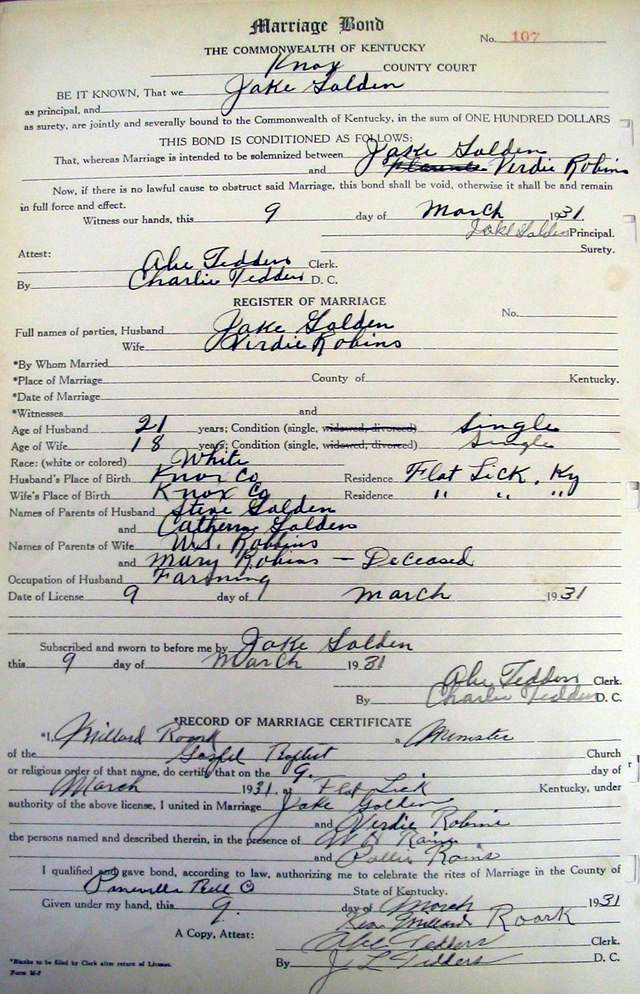 Marriage Bond
No. 107
THE COMMONWEALTH OF KENTUCKY
Knox COUNTY COURT
BE IT KNOWN, That we Jake Golden
as principal, and
as surety, are jointly and severally bound to the Commonwealth of Kentucky, in the sum of ONE HUNDRED DOLLARS
THIS BOND IS CONDITIONED AS FOLLOWS:
That, whereas Marriage is intended to be solemnized between Jake Golden
and Verdie Robins
Now, if there is no lawful cause to obstruct said Marriage, this bond shall be void, otherwise it shall be and remain
in full force and effect.
Witness our hands, this 9 day of March 1931
Jake Golden Principal.
Surety.
Attest:
Abe Tedders Clerk.
By Charlie Tedders D. C.
REGISTER OF MARRIAGE
No.
Full names of parties, Husband Jake Golden
Wife Verdie Robins
*By Whom Married
*Place of Marriage County of Kentucky.
*Date of Marriage
*Witnesses and
Age of Husband 21 years; Condition (single, widowed, divorced) Single
Age of Wife 18 years; Condition (single, widowed, divorced) Single
Race: (white or colored) White
Husband's Place of Birth Knox Co Residence Flat Lick, Ky
Wife's Place of Birth Knox Co Residence " " "
Names of Parents of Husband Steve Golden
and Catherine Golden
Names of Parents of Wife W.S. Robbins
and Mary Robins — Deceased
Occupation of Husband Farming
Date of License 9 day of March 1931
Subscribed and sworn to before me by Jake Golden
this 9 day of March 1931
Abe Tedders Clerk.
By Charlie Tedders D. C.
*RECORD OF MARRIAGE CERTIFICATE
*I, Millard Roark a Minister
of the Gospel Baptist Church
or religious order of that name, do certify that on the 9. day of
March 1931, at Flat Lick Kentucky, under
authority of the above license, I united in Marriage Jake Golden
and Verdie Robins
the persons named and described therein, in the presence of W R Rains
and Pollie Rains
I qualified and gave bond, according to law, authorizing me to celebrate the rites of Marriage in the County of
Pineville Bell Co State of Kentucky.
Given under my hand, this 9. day of March 1931
Rev Millard Roark
A Copy, Attest: Abe Tedders Clerk.
By J L Tedders D. C.
*Blanks to be filed by Clerk after return of License.
Form M-7